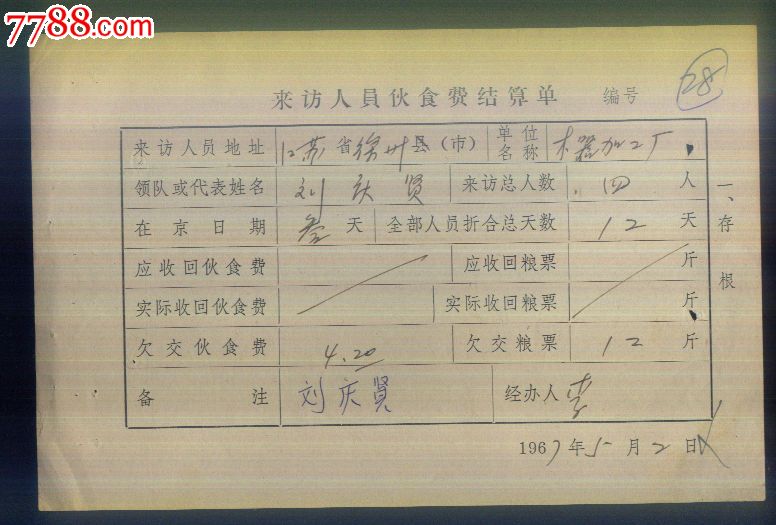 7788.com
来访人員伙食费结算单 编号 28
来访人员地址 江苏省徐州县(市) 单位名称 木器加工厂
领队或代表姓名 刘庆贤 来访总人数 四 人
在京日期 叁 天 全部人员折合总天数 12 天
应收回伙食费 应收回粮票 斤
实际收回伙食费 实际收回粮票 斤
欠交伙食费 4.20 欠交粮票 12 斤
备注 刘庆贤 经办人 李
一、存根
1967年5月2日